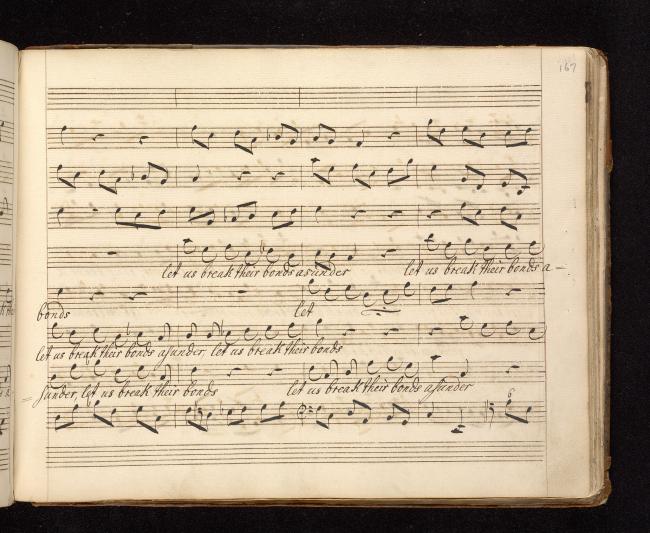 167
let us break their bonds asunder let us break their bonds a =
bonds let
let us break their bonds asunder, let us break their bonds
= sunder, let us break their bonds let us break their bonds asunder
6